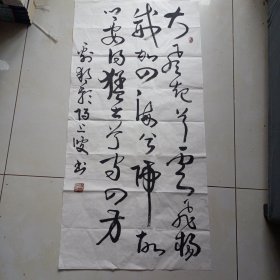 大風起兮雲飛揚
威加四海兮歸故
鄉安得猛士兮守四方
劉邦歌 上 书